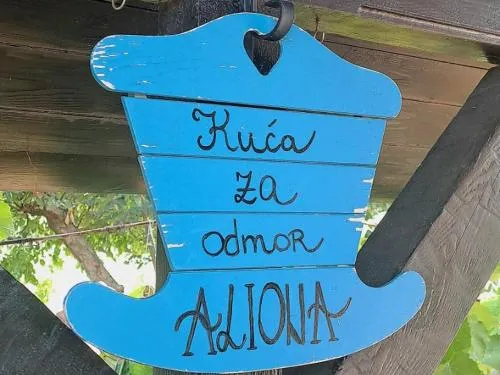 Kuća
za
odmor
ALIONA